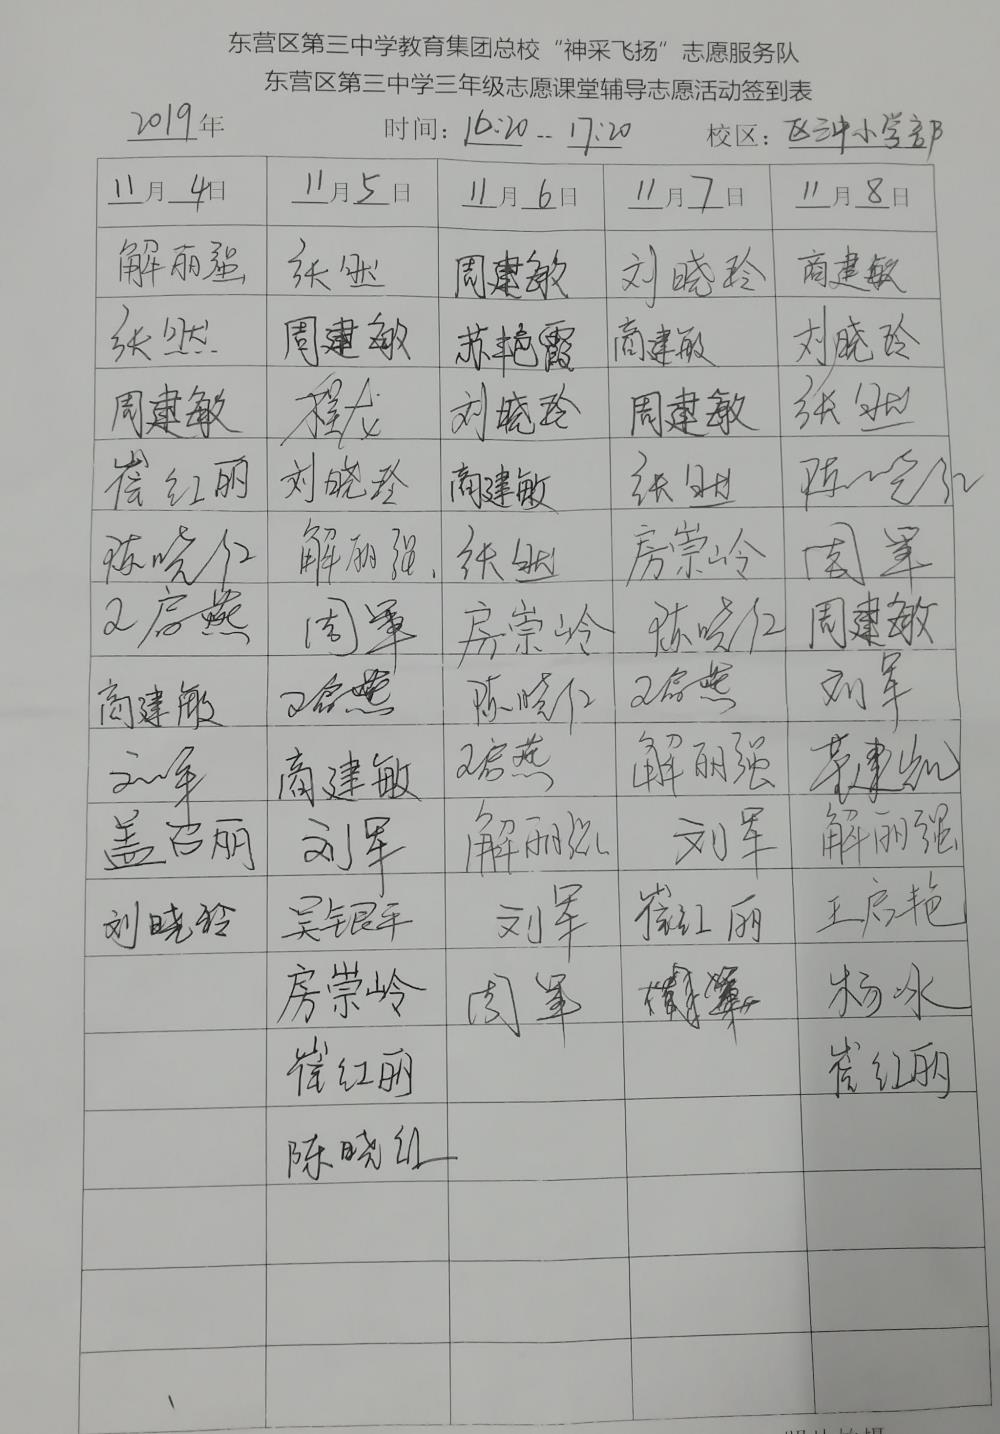 东营区第三中学教育集团总校“神采飞扬”志愿服务队
东营区第三中学三年级志愿课堂辅导志愿活动签到表
2019年 时间：16:20--17:20 校区：区三中小学部
11月4日 11月5日 11月6日 11月7日 11月8日
解丽强 张然 周建敏 刘晓玲 商建敏
张然 周建敏 苏艳霞 商建敏 刘晓玲
周建敏 程龙 刘晓玲 周建敏 张然
崔红丽 刘晓玲 商建敏 张然 陈晓红
陈晓红 解丽强 张然 房崇岭 周军
王启燕 周军 房崇岭 陈晓红 周建敏
商建敏 王启燕 陈晓红 王启燕 刘军
刘军 商建敏 王启燕 解丽强 建凯
盖召丽 刘军 解丽强 刘军 解丽强
刘晓玲 吴银平 刘军 崔红丽 王启艳
房崇岭 周军 杨冰
崔红丽 崔红丽
陈晓红